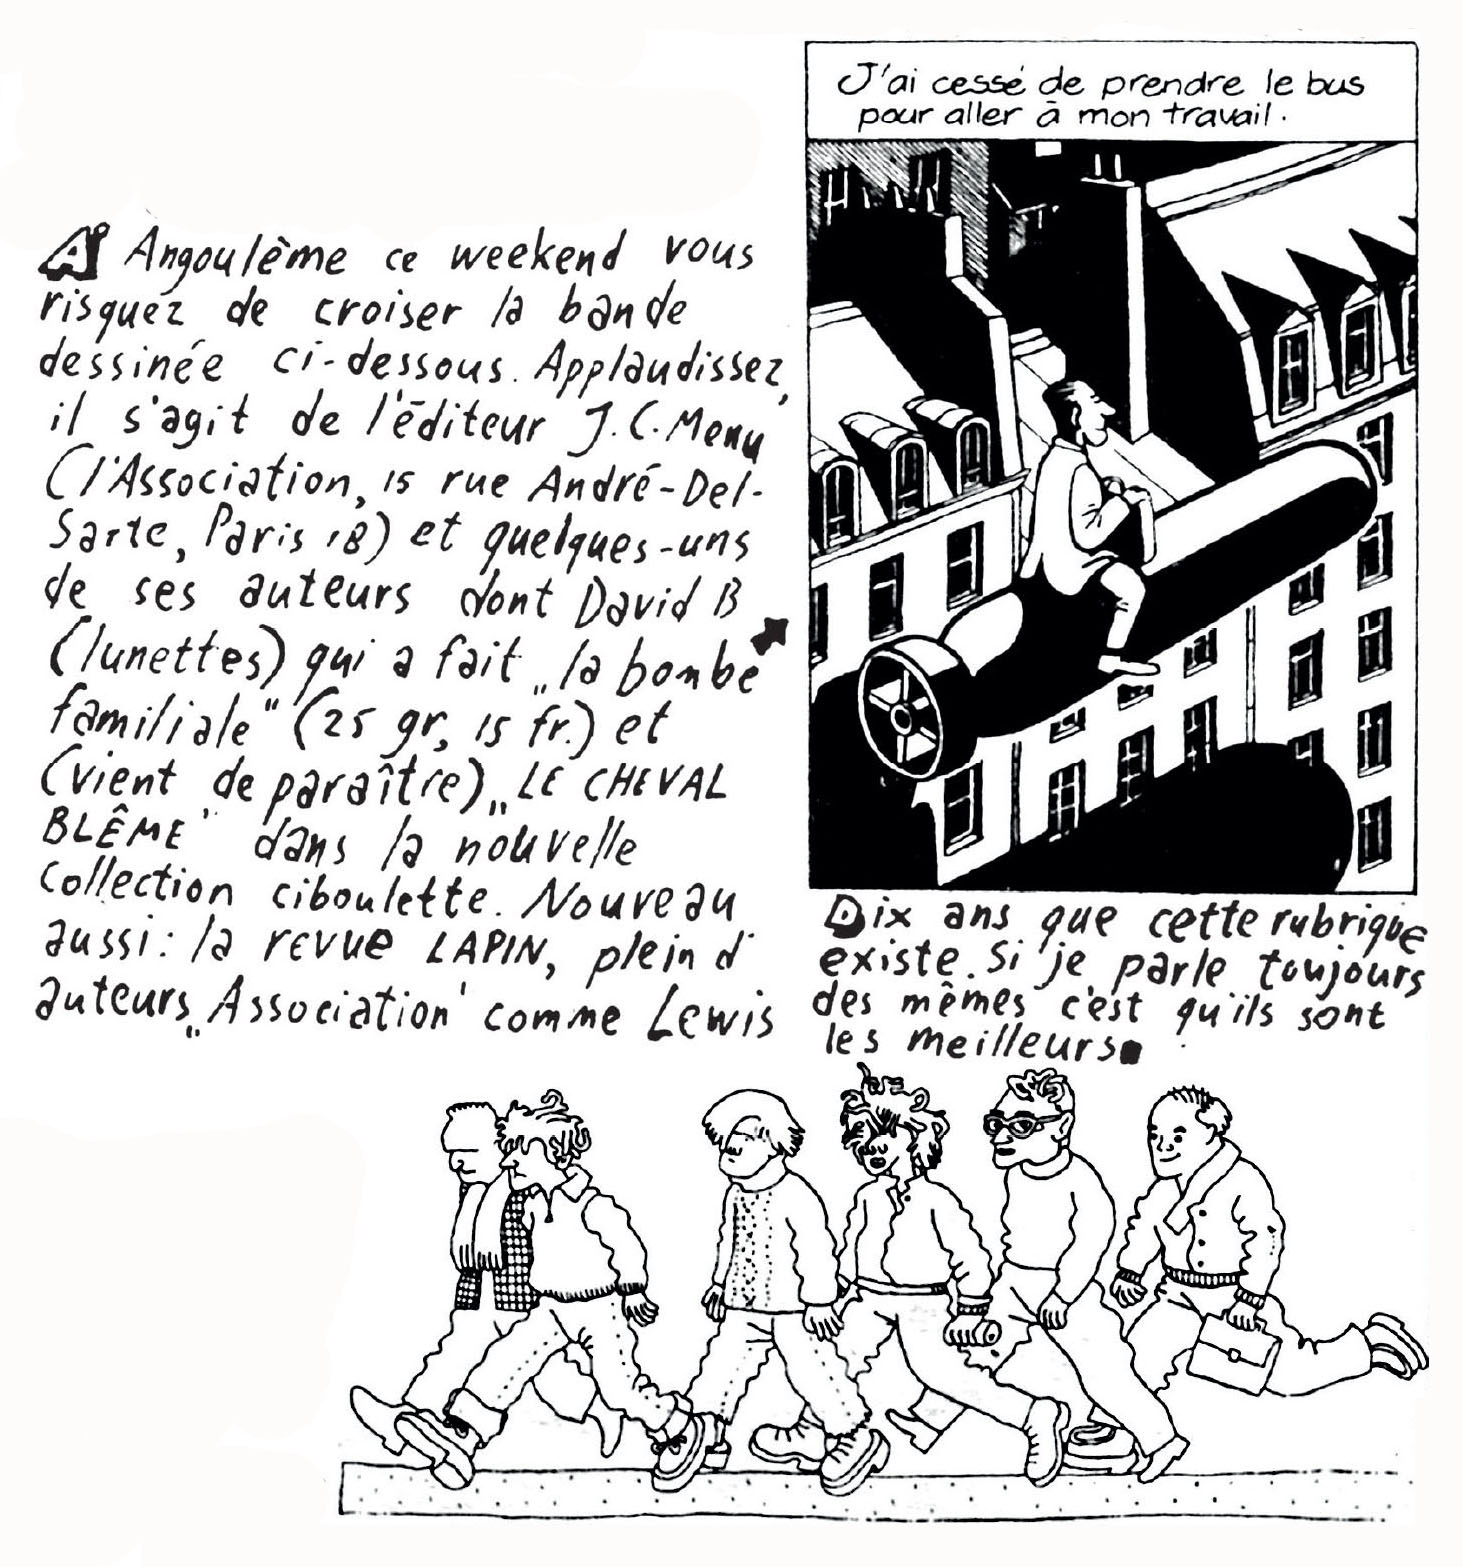 À Angoulême ce weekend vous
risquez de croiser la bande
dessinée ci-dessous. Applaudissez,
il s'agit de l'éditeur J.C. Menu
(l'Association, 15 rue André-Del-
Sarte, Paris 18) et quelques-uns
de ses auteurs dont David B
(lunettes) qui a fait „la bombe
familiale" (25 gr, 15 fr.) et
(vient de paraître) „LE CHEVAL
BLÊME' dans la nouvelle
collection ciboulette. Nouveau
aussi: la revue LAPIN, plein d'
auteurs „Association' comme Lewis
J'ai cessé de prendre le bus
pour aller à mon travail.
Dix ans que cette rubrique
existe. Si je parle toujours
des mêmes c'est qu'ils sont
les meilleurs.